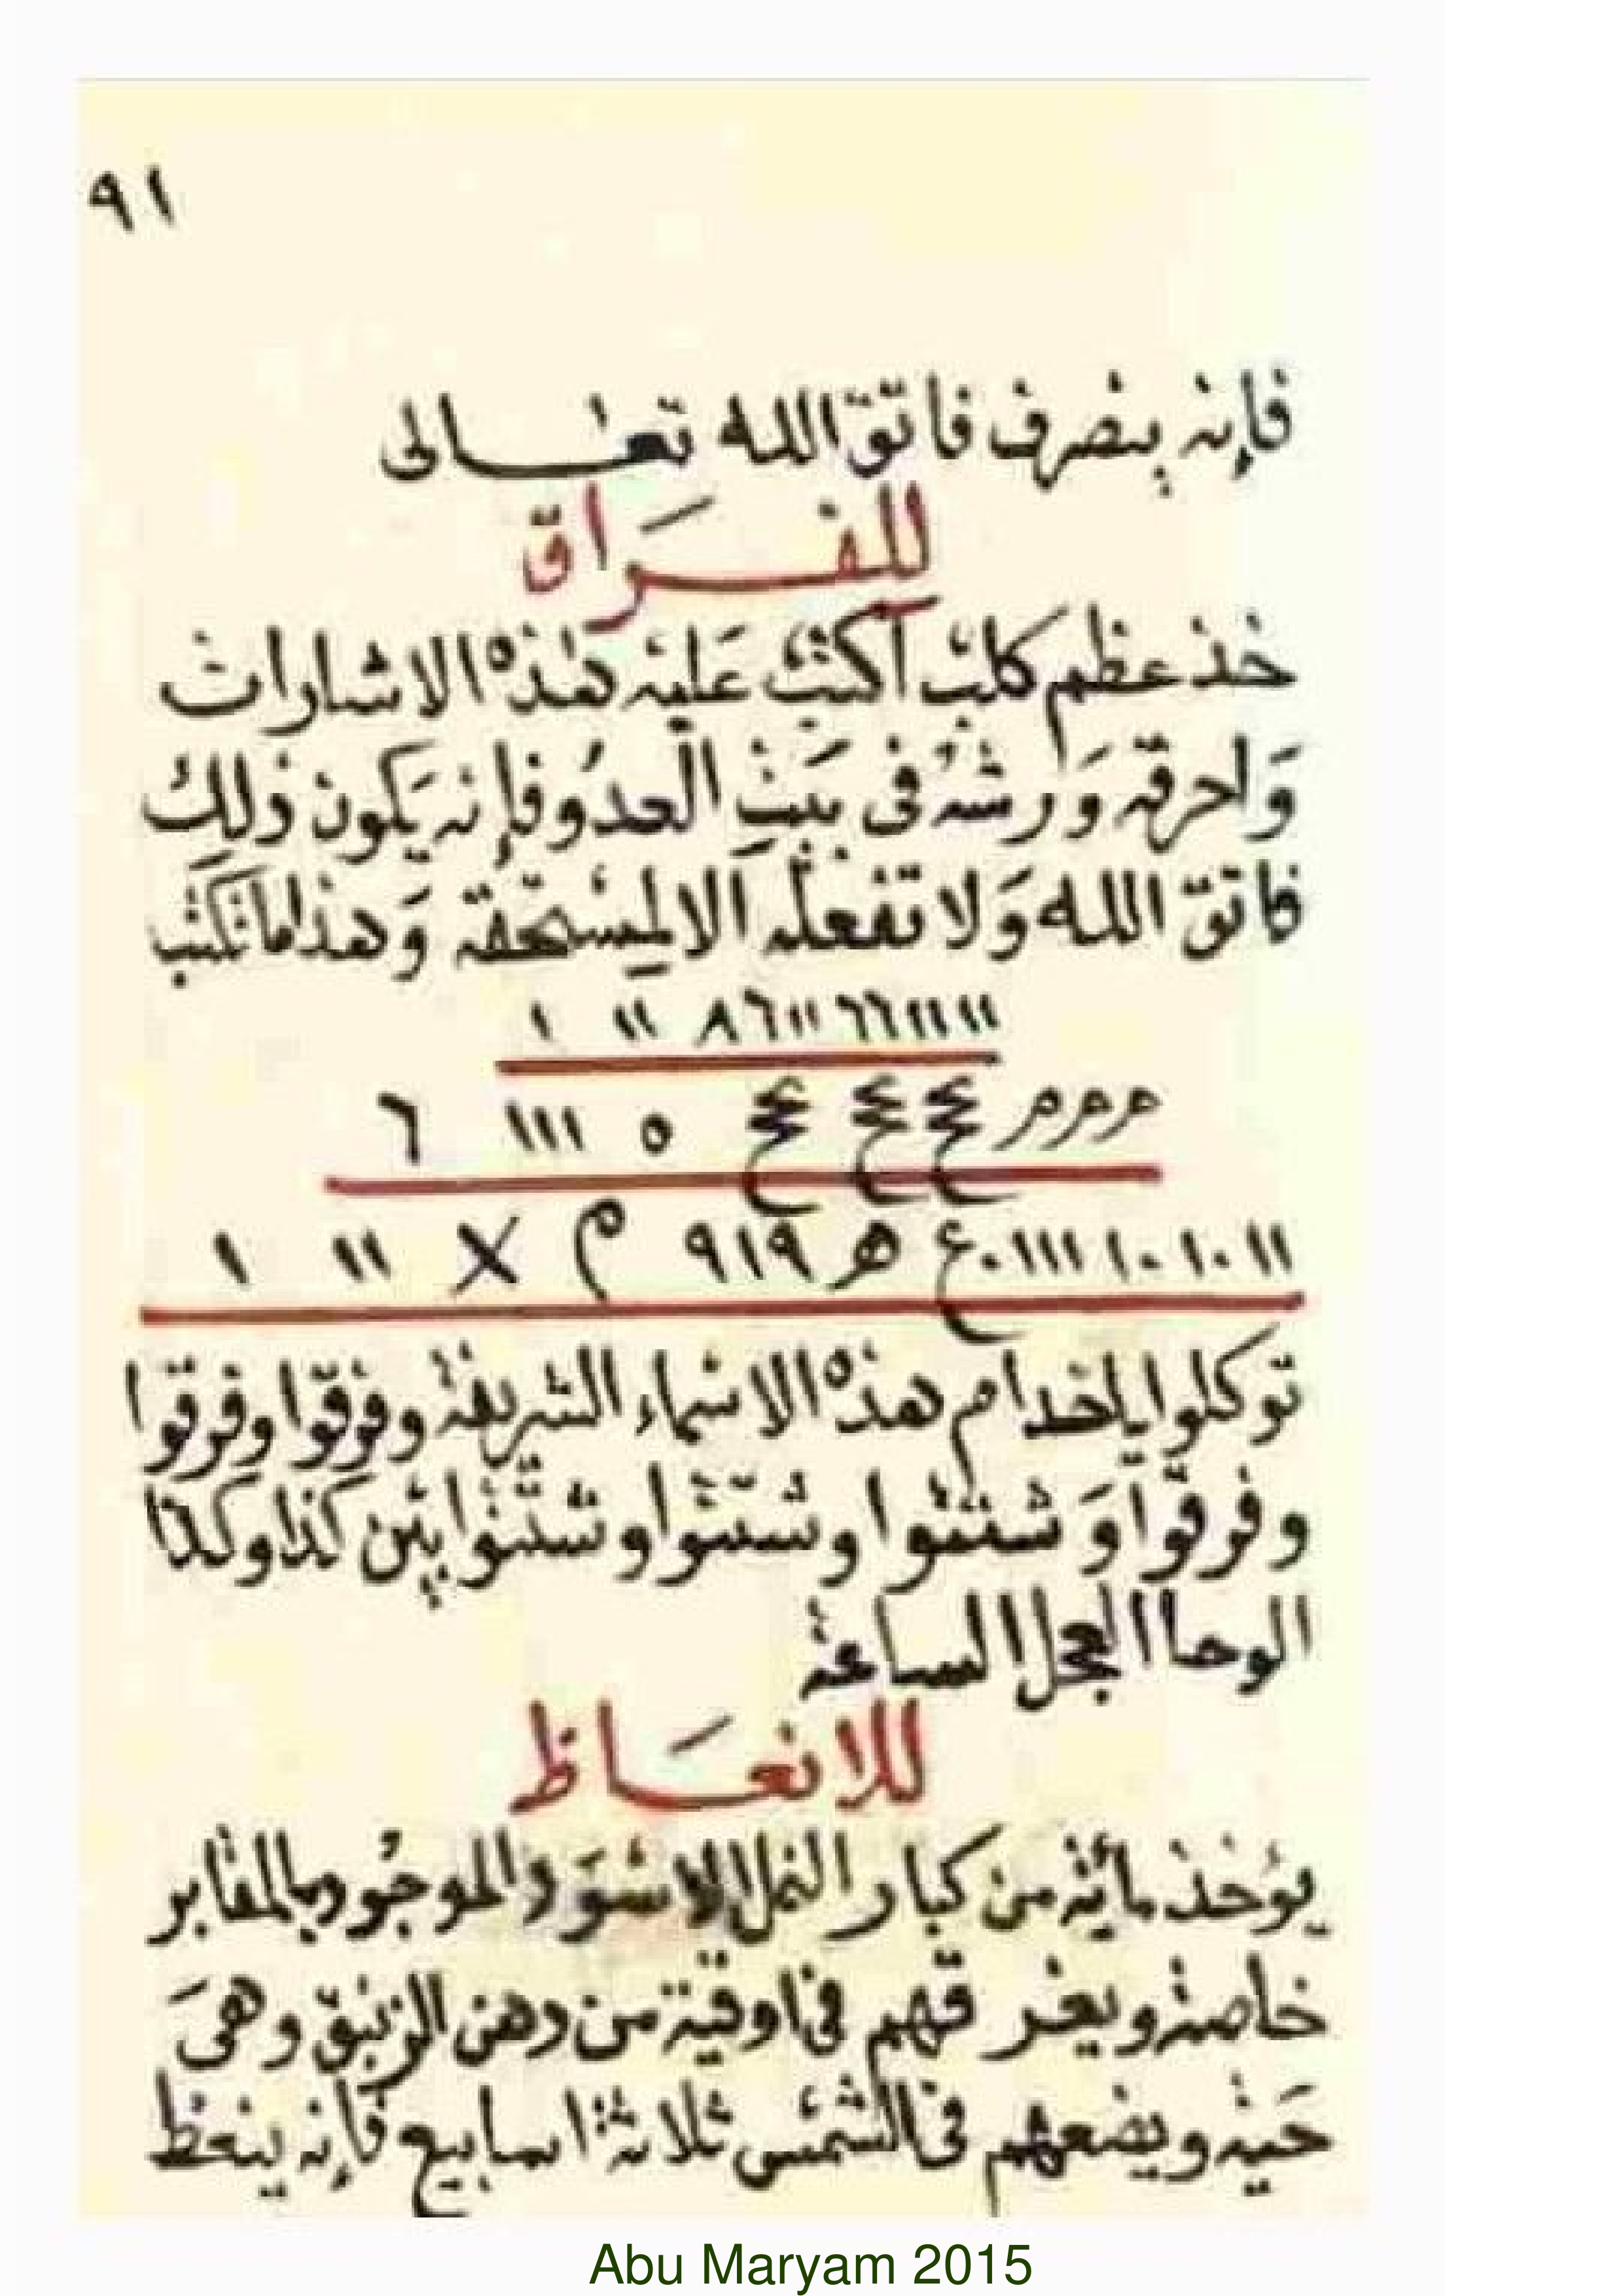 ٩١
فإنه ينصرف فاتق الله تعالى
للفراق
خذ عظم كلب اكتب عليه هذه الاشارات
واحرقه ورشه فى بيت العدو فإنه يكون ذلك
فاتق الله ولا تفعله الا لمستحقه وهذا ما تكتب
١١ ١١ ١١ ٦٦ ١١ ٨٦ ١١ ١
م م م ع ع ع ٥ ١١١ ٦
١١ ١٠ ١٠ ١١١ ٠ ع ه ٩١٩ م X ١١ ١
توكلوا يا خدام هذه الاسماء الشريفة وفرقوا وفرقوا
وفرقوا وشتتوا وشتتوا وشتتوا بين كذا وكذا
الوحا العجل الساعة
للانعاظ
يؤخذ مائة من كبار النمل الاسود الموجود بالمقابر
خاصة ويغرقهم فى اوقية من دهن الزنبق وهى
حية ويضعهم فى الشمس ثلاثة اسابيع فإنه ينعظ
Abu Maryam 2015